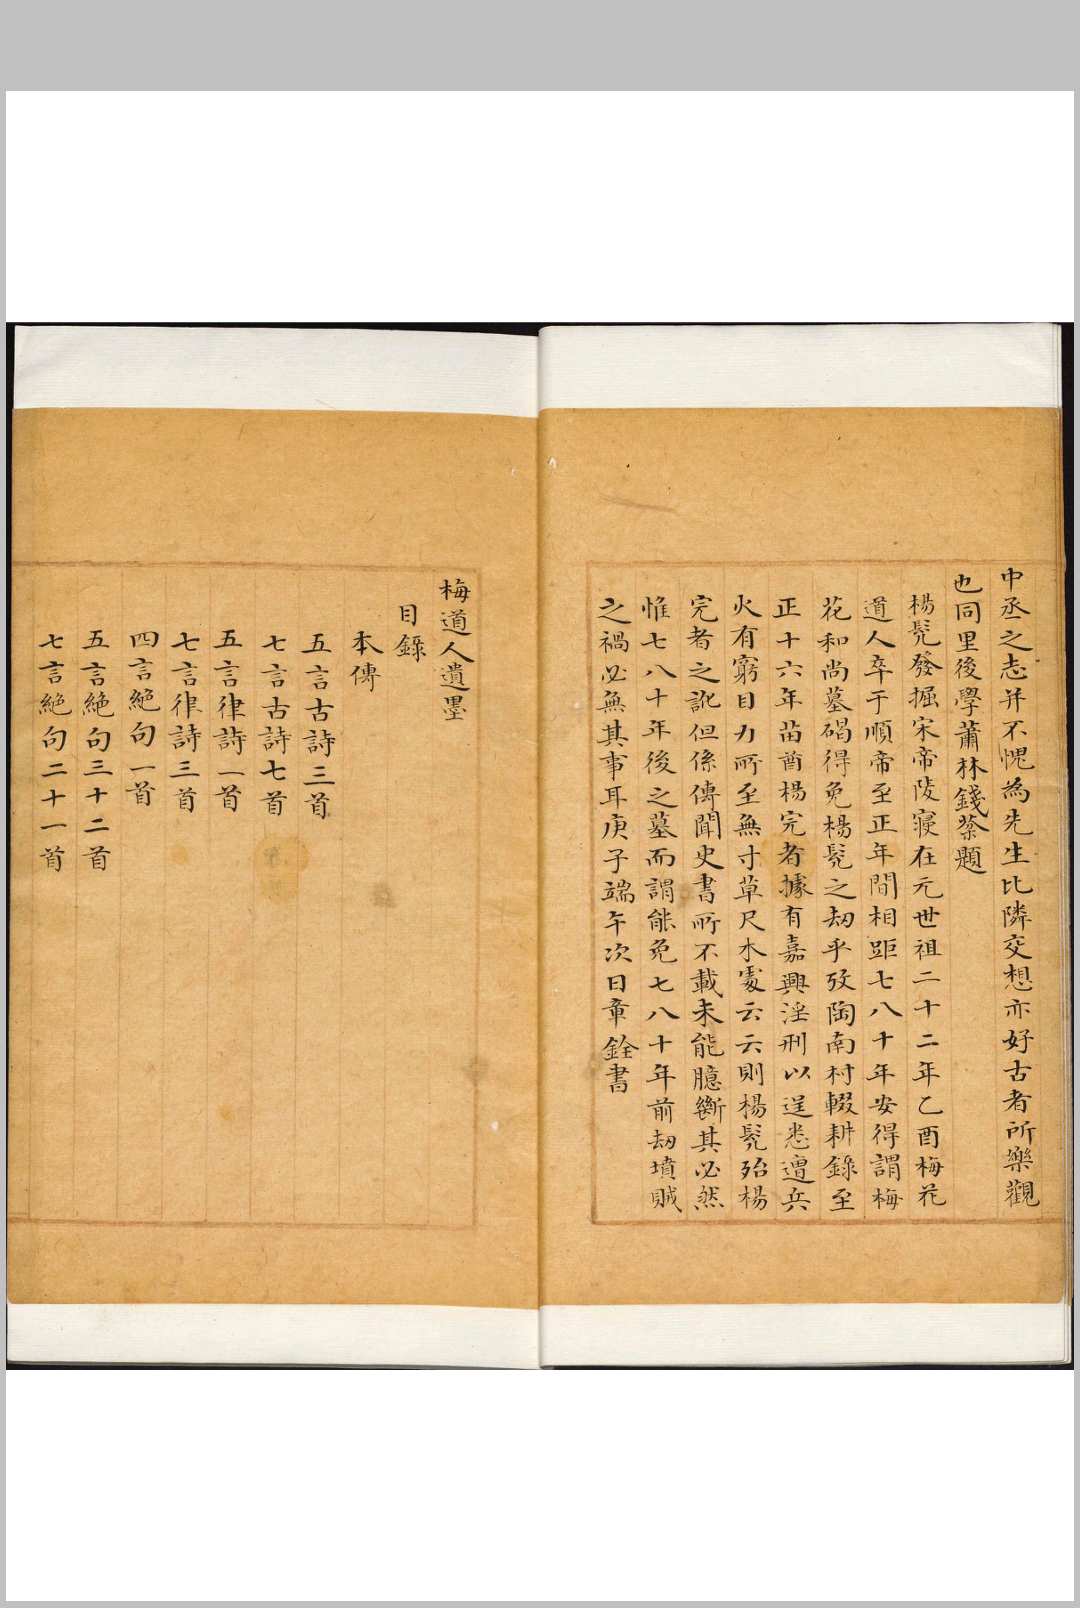 中丞之志并不愧為先生比隣交想亦好古者所樂觀
也同里後學蕭林錢棻題
楊髡發掘宋帝陵寝在元世祖二十二年乙酉梅花
道人卒于順帝至正年間相距七八十年安得謂梅
花和尚墓碣得免楊髡之刼乎攷陶南村輟耕錄至
正十六年苗酋楊完者據有嘉興淫刑以逞悉遭兵
火有窮目力所至無寸草尺木處云云則楊髡殆楊
完者之訛但係傳聞史書所不載未能臆斷其必然
惟七八十年後之墓而謂能免七八十年前刼墳賊
之禍必無其事耳庚子端午次日章銓書
梅道人遺墨
目錄
本傳
五言古詩三首
七言古詩七首
五言律詩一首
七言律詩三首
四言絕句一首
五言絕句三十二首
七言絕句二十一首